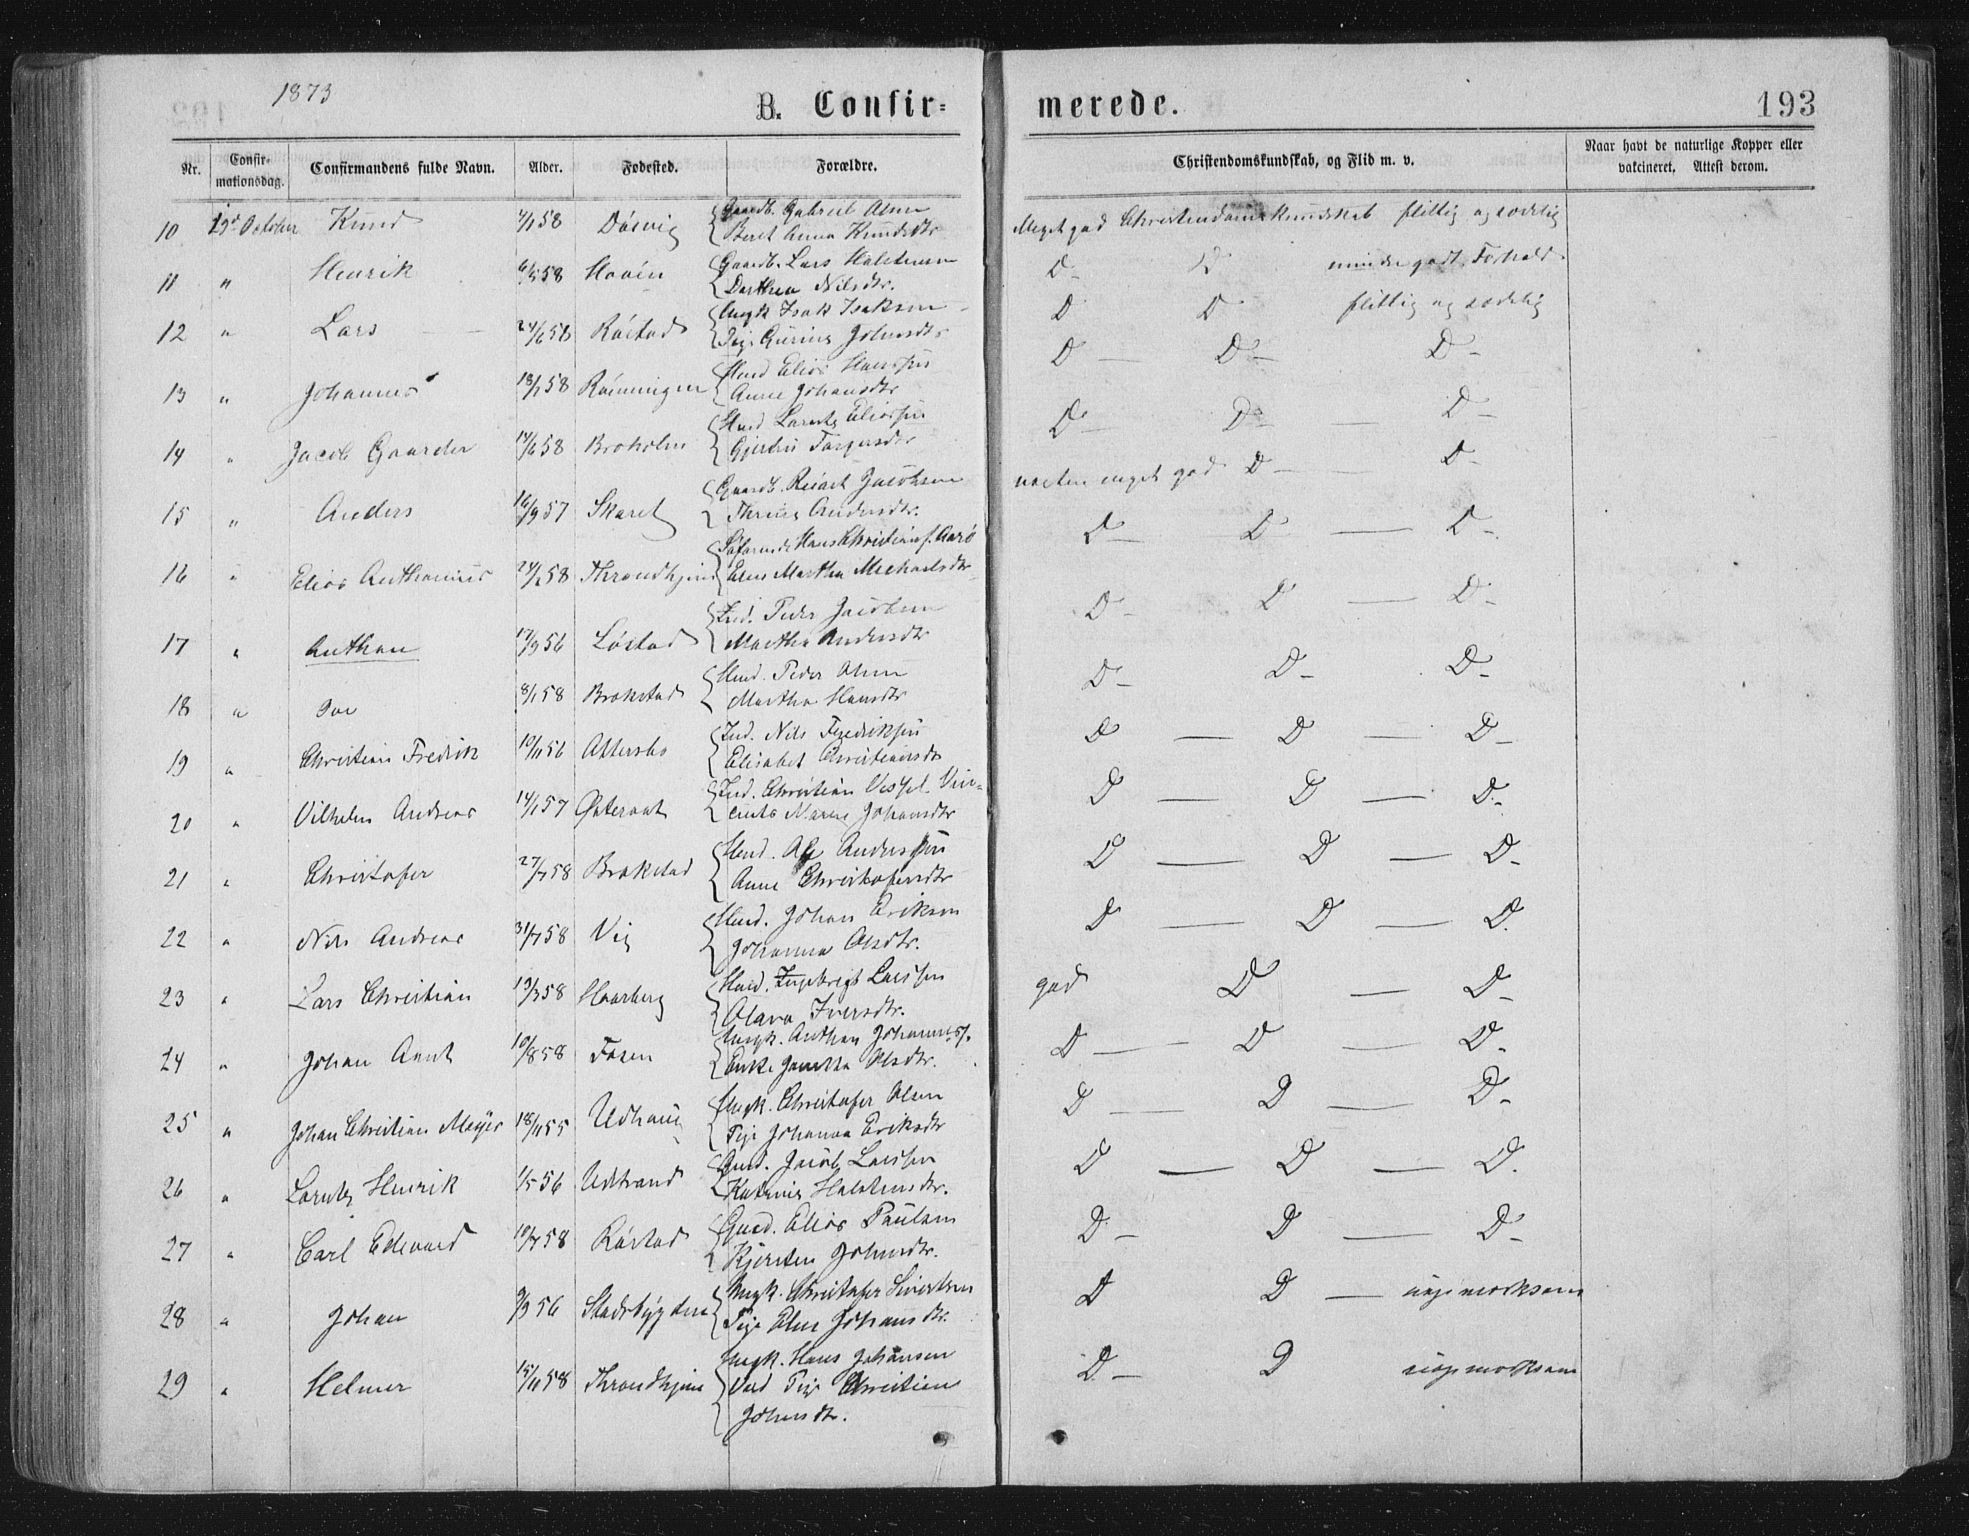 1873
B. Confir=
merede.
193
Nr.
Confir-
mationsdag.
Confirmandens fulde Navn.
Alder.
Fødested.
Forældre.
Christendomskundskab, og Flid m. v.
Naar havt de naturlige Kopper eller
vakcineret. Attest derom.
10 October Knud 58 Dösvig Gaardb. Gabriel Olsen
Beret Anna Knudsdtr
Meget god Christendomskundskab flittig og sædelig
11 " Henrik 58 Hoven Gaardb. Lars Halstensen
Dorthea Nilsdtr.
D- D mindre godt Forhold
12 " Lars 24/6 58 Röstad Ungk Isak Isaksen
Pige Gurine Johnsdtr
D D flittig og sædelig
13 " Johannes 18/7 58 Rönningen Huusd Elias Hansen
Anne Johansdtr
D - D - D -
14 " Jacob Gaarder 14/6 58 Broholm Huusd Larentz Eliassen
Gjertru
D- D- - D -
15 " Anders 16/9 57 Skaret Gaardb. Jacobsen
Andersdtr.
næsten meget god D - - D -
16 " Elias Anthonius 24/2 58 Throndhjem Hans Christian
Elen Martha Michaelsdtr
D- D - D -
17 " Anthon 17/9 56 Löstad Ind. Peder Jacobsen
Martha Andersdtr
D- D - D -
18 " 8/1 58 Brekstad Huusd. Peder Olsen
Martha Hansdtr
D- D - D -
19 " Christian Fredrik 10/11 56 Ottersbo Ind. Nils Fredriksen
Elisabet Christiansdtr
D - D - D -
20 " Vilhelm Andreas 14/1 57 Østeraat Ind. Christian Vessel
Maren Johansdtr
D - D - D -
21 " Christofer 27/7 58 Brekstad Huusd. Anderssen
Anne Christofersdtr
D - D - D -
22 " Nils Andreas 31/7 58 Vig Huusd. Johan Eriksen
Johanna Olsdtr.
D - D - D.
23 " Lars Christian 19/3 58 Hoarberg Huusd. Ingebregt Larssen
Olava Iversdtr.
god D - D -
24 " Johan Arnt 10/8 58 Fosen Ungk. Anthon Johannes.
Enke Olsdtr.
D - D - D -
25 " Johan Christian Meyer 18/11 55 Udhaug Ungk. Christofer Olsen
Pige Johanna Eriksdtr
D - D - D -
26 " Larentz Henrik 1/5 56 Udstrand Jacob Larssen
Katrine Halstensdtr.
D - D - D.
27 " Carl Edevard 10/7 58 Röstad Elias Paulsen
Kjersten Johnsdtr.
D - D - D -
28 " Johan 9/9 56 Stadsbygden Ungk. Christofer Sivertsen
Pige Elen Johansdtr.
D D - uopmærksom
29 " Helmer 15/11 58 Throndhjem Ungk. Hans Johansen
Ved Pige Christine
Johnsdtr.
D - D uopmærksom